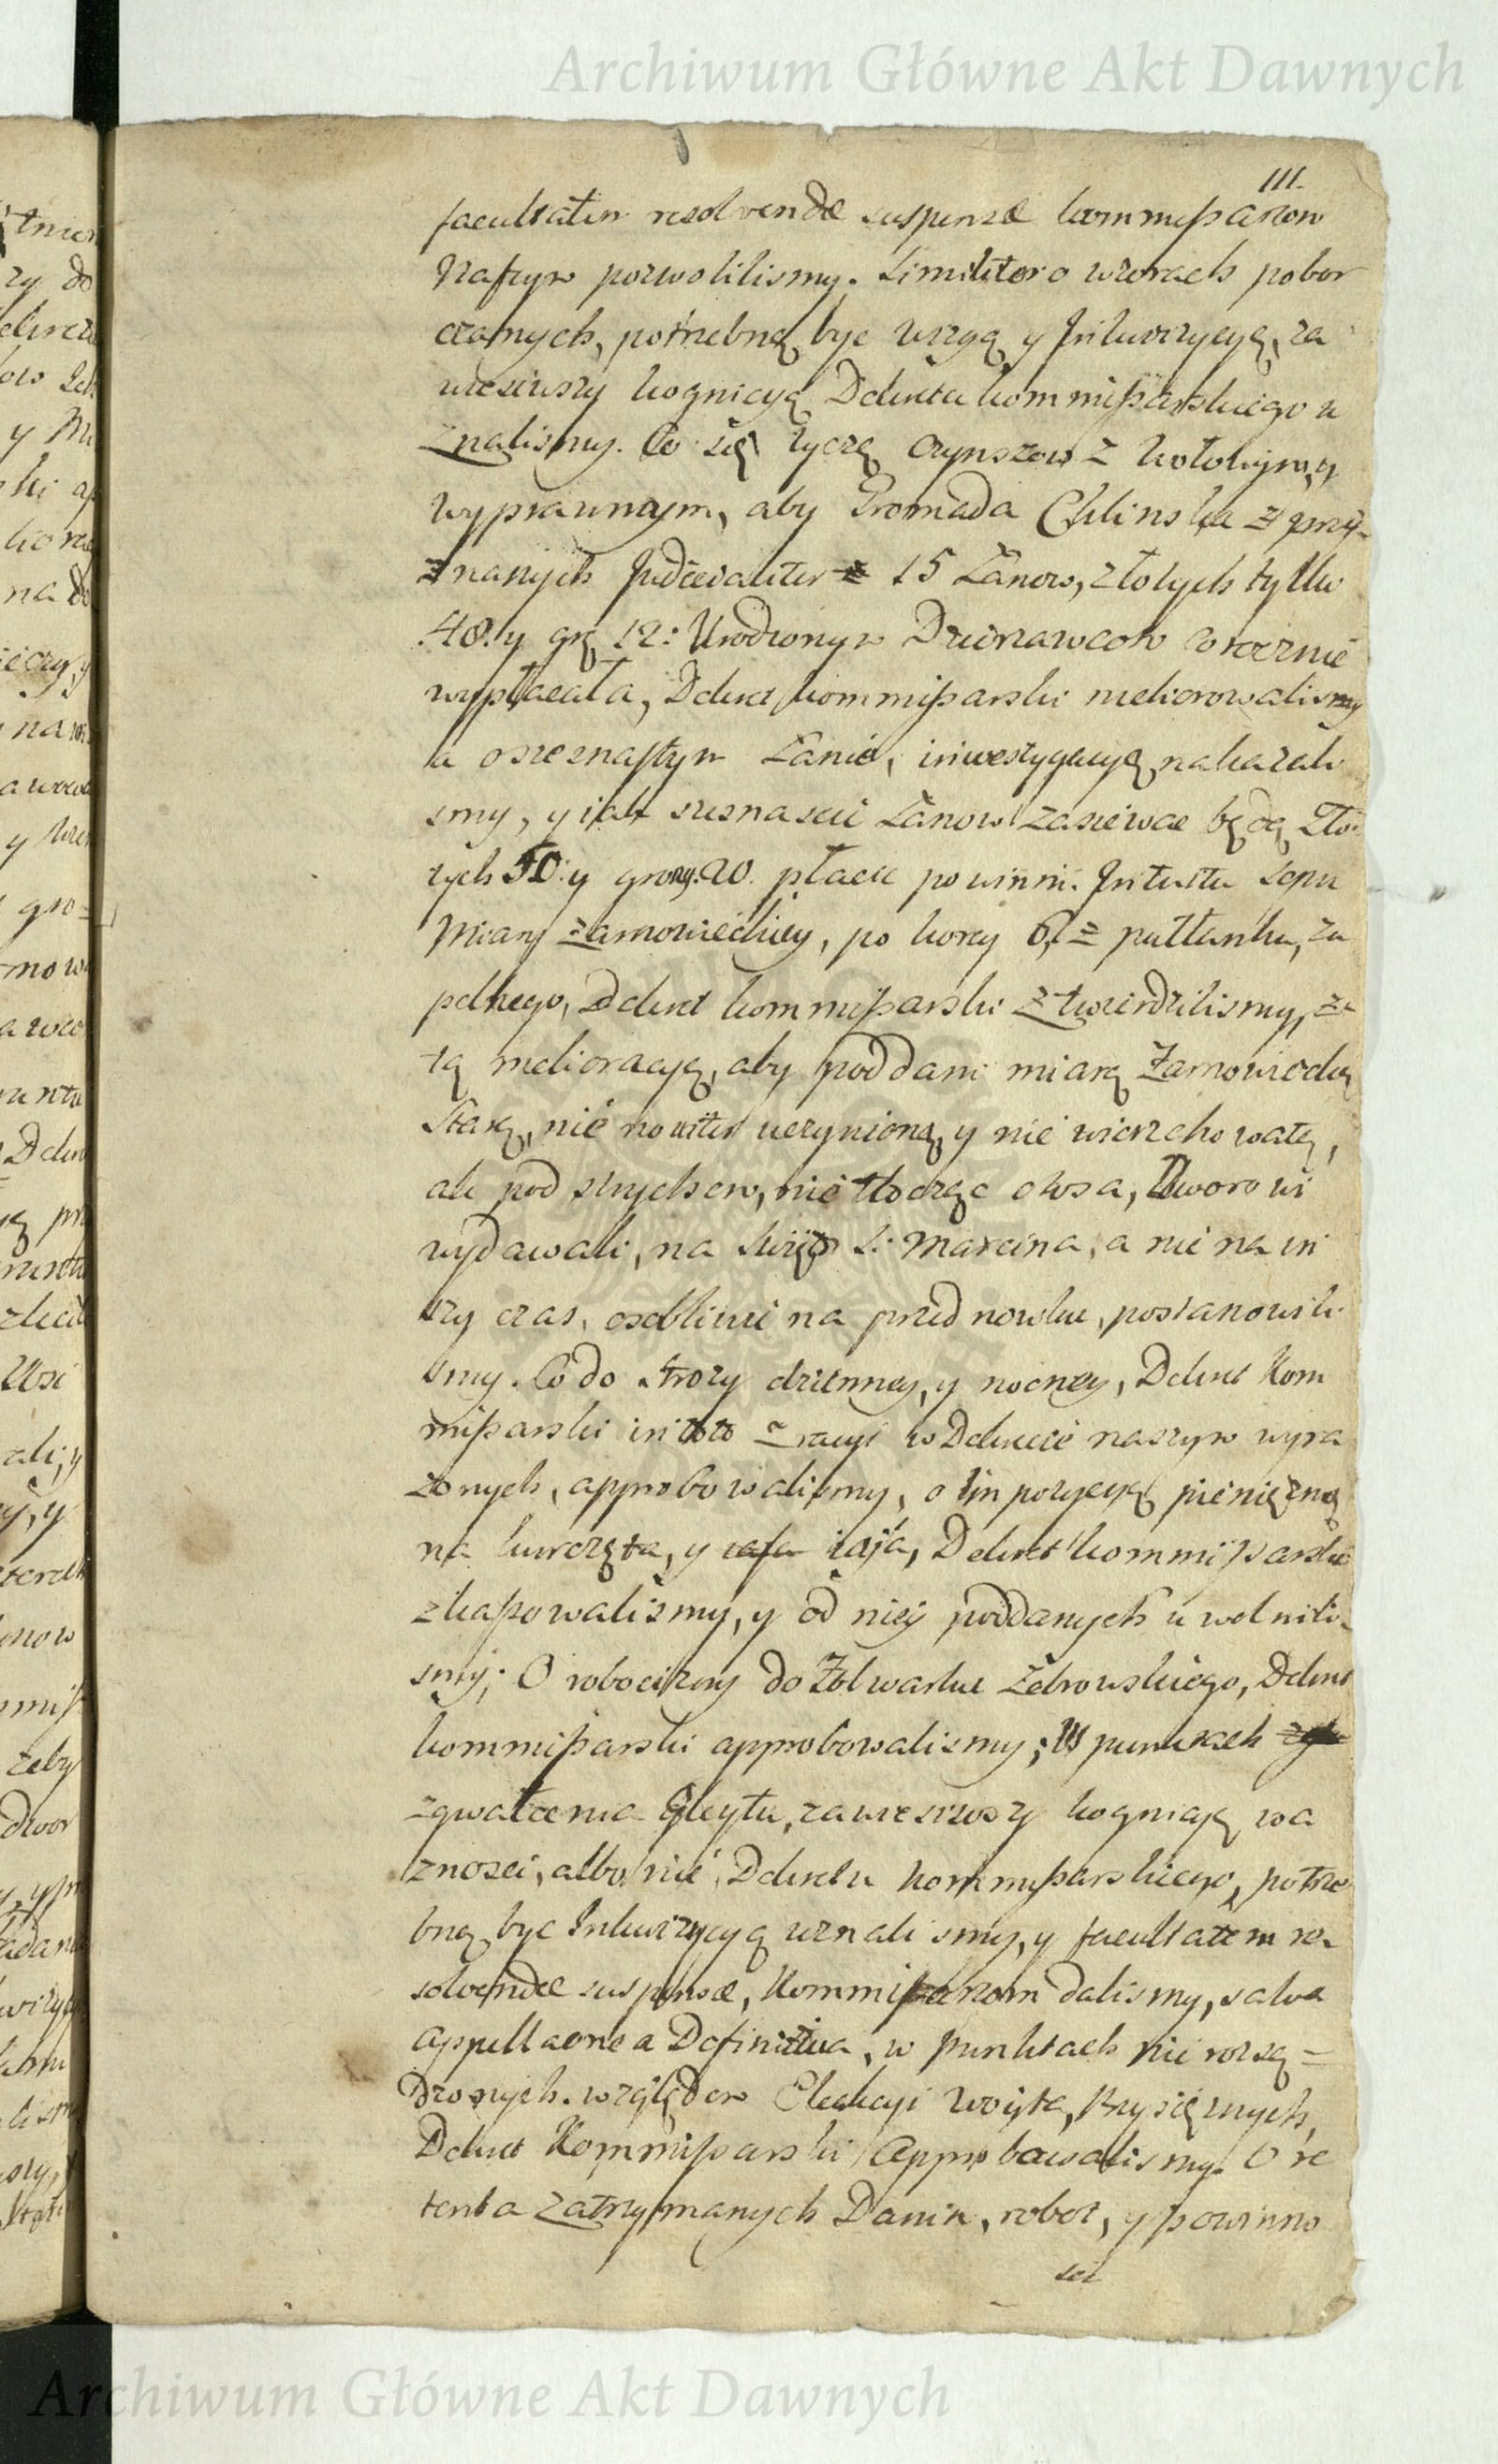 Archiwum Główne Akt Dawnych
111.
facultatem resolvendæ suspensæ kommissarzom
Naszym pozwolilismy. Similiter o wiorach pobor
czanych, potrzebną byc uzgą y Inkwizycyą, za
wiesiwszy kognicyą Dekretu kommissarskiego u
znalismy. Co się tycze czynszow z
wyprawnym, aby Gromada Chlinska z przy-
znanych Judicialiter 15 Łanow, złotych tylko
48. y gr 12: Urodzonym Dzierzawcom corocznie
wypłacała, Dekret kommissarski meliorowalismy
a o szesnastym Łanie, inwestygacyą nakazali
smy, y iak szesnascie Łanow zasiewac będą, Zło
tych 50: y groszy. 20. płacic powinni. Intuitu Sepu
Miary zamowieckiey, po korcy 6, z pułłanku, zu
pełnego, Dekret kommissarski ztwierdzilismy, z
tą melioracyą, aby poddani miarą Zamowiecką
Starą, nie noviter uczynioną, y nie wierzchowatą,
ale pod strychem, nie tłocząc owsa, Dworowi
wydawali, na Swięto S. Marcina, a nie na in
szy czas, osobliwie na przednowku, postanowili
smy. Co do strozy dzienney, y nocney, Dekret Kom
missarski in toto z racyi w Dekrecie naszym wyra
zonych, approbowalismy, o Impozycyą pieniężną
na kurczęta, y iaia iaja, Dekret kommissarski
zkassowalismy, y od niey poddanych uwolnili-
smy; O robocizny do Folwarku Zebrowskiego, Dekret
kommissarski approbowalismy; W punktach
zgwałcenia Gleytu, zawiesiwszy kognicyą wa
znosci, albo nie, Dekretu kommissarskiego, potrze
bną byc Inkwizycyą uznalismy, y facultatem re
solvendæ suspensæ, Kommissarzom dalismy, salva
appellaone a Definitiva, w punktach nie rozsą=
dzonych. względem Elekcyi Woyta, Przysiężnych,
Dekret Kommissarski Approbowalismy. O re
tenta Zatrzymanych Danin, robot, y powinno
sci
Archiwum Główne Akt Dawnych